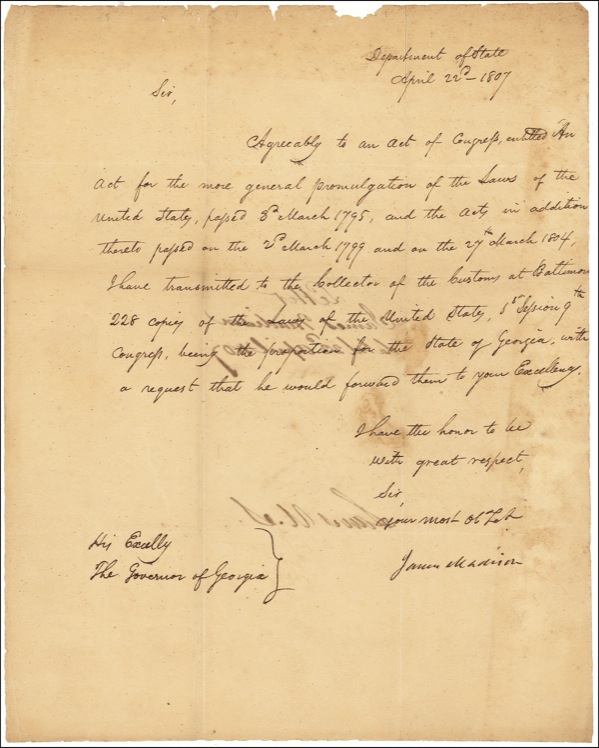 Department of State
April 22d - 1807
Sir,
Agreeably to an Act of Congress, entitled "An
Act for the more general promulgation of the Laws of the
United States, passed 3d March 1795, and the Acts in addition
thereto passed on the 2d March 1799 and on the 27th March 1804,
I have transmitted to the Collector of the Customs at Baltimore
228 copies of the Laws of the United States, 1st Session 9th
Congress, being the proportion for the State of Georgia, with
a request that he would forward them to your Excellency.
I have the honor to be
with great respect,
Sir,
your most Ob
James Madison
His Excelly
The Governor of Georgia